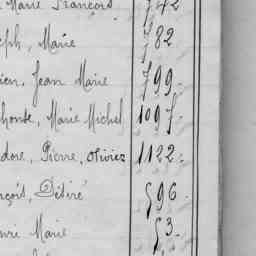 Marie François 742
eph, Marie 782
ien, Jean Marie 799.
phonse, Marie Michel 1097.
dore, Pierre, Olivier 1122.
nçois, Désiré 596.
enri Marie 53.